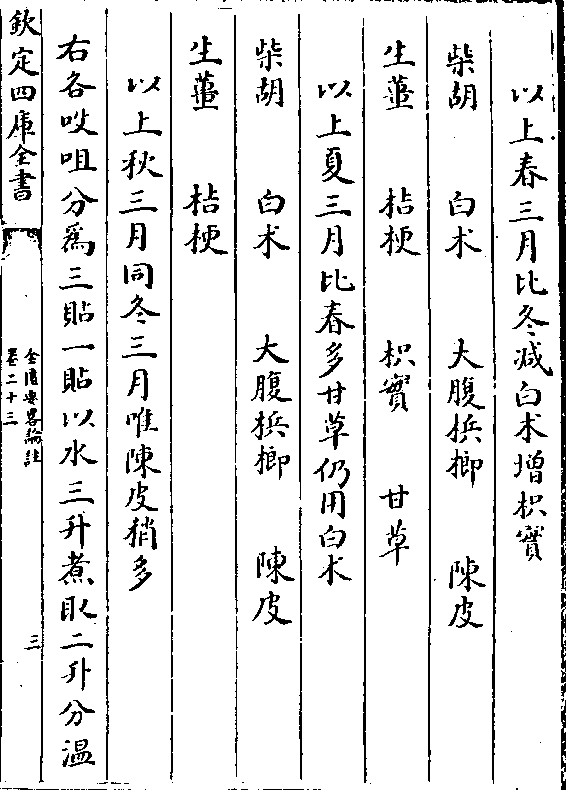 以上春三月比冬減白朮增枳實
柴胡　白朮　大腹檳榔　陳皮
生薑　桔梗　枳實　甘草
以上夏三月比春多甘草仍用白朮
柴胡　白朮　大腹檳榔　陳皮
生薑　桔梗
以上秋三月同冬三月唯陳皮稍多
右各㕮咀分爲三貼一貼以水三升煮取二升分溫
欽定四庫全書
金匱要畧論註
卷二十三
三